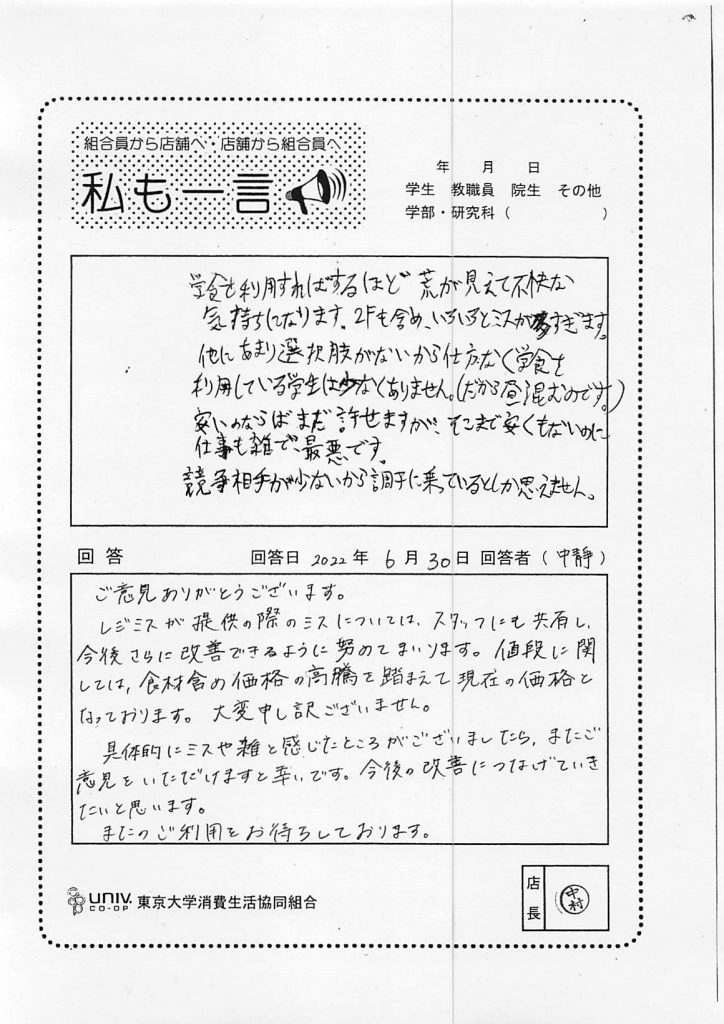 組合員から店舗へ・店舗から組合員へ
私も一言
年 月 日
学生 教職員 院生 その他
学部・研究科( )
学食も利用すればするほど荒が見えて不快な
気持ちになります。2Fも含め、いろいろとミスが多すぎます。
他にあまり選択肢がないから仕方なく学食を
利用している学生は少なくありません。(だから昼混むのです。)
安いのならばまだ許せますが、そこまで安くもないのに
仕事も雑で、最悪です。
競争相手が少ないから調子に乗っているとしか思えません。
回答 回答日 2022年 6月30日 回答者(中静)
ご意見ありがとうございます。
レジミスが提供の際のミスについては、スタッフにも共有し、
今後さらに改善できるように努めてまいります。値段に関
しては、食材含め価格の高騰を踏まえて現在の価格と
なっております。大変申し訳ございません。
具体的にミスや雑と感じたところがございましたら、またご
意見をいただけますと幸いです。今後の改善につなげていき
たいと思います。
またのご利用をお待ちしております。
UNIV. CO-OP 東京大学消費生活協同組合
店長 中村